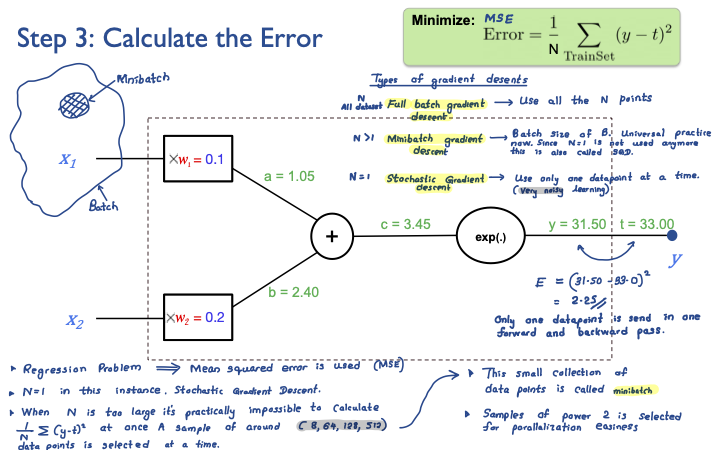 Step 3: Calculate the Error
Minimize: MSE
Error = 1/N Σ (y − t)²
TrainSet
Minibatch
Types of gradient desents
N
All dataset Full batch gradient descent → Use all the N points
N >1 Minibatch gradient descent → Batch size of B. Universal practice
now. Since N=1 is not used anymore
this is also called SGD.
N=1 Stochastic Gradient descent → Use only one datapoint at a time.
(Very noisy learning)
x₁
×w₁ = 0.1
a = 1.05
Batch
+
c = 3.45
exp(.)
y = 31.50 t = 33.00
y
x₂
×w₂ = 0.2
b = 2.40
E = (31.50 - 33.0)²
= 2.25
Only one datapoint is send in one
forward and backward pass.
▸ Regression Problem ⟹ Mean squared error is used (MSE)
▸ N=1 in this instance. Stochastic Gradient Descent.
▸ When N is too large it's practically impossible to calculate
1/N Σ (y-t)² at once A sample of around (8, 64, 128, 512)
data points is selected at a time.
▸ This small collection of
data points is called minibatch
▸ Samples of power 2 is selected
for parallalization easiness